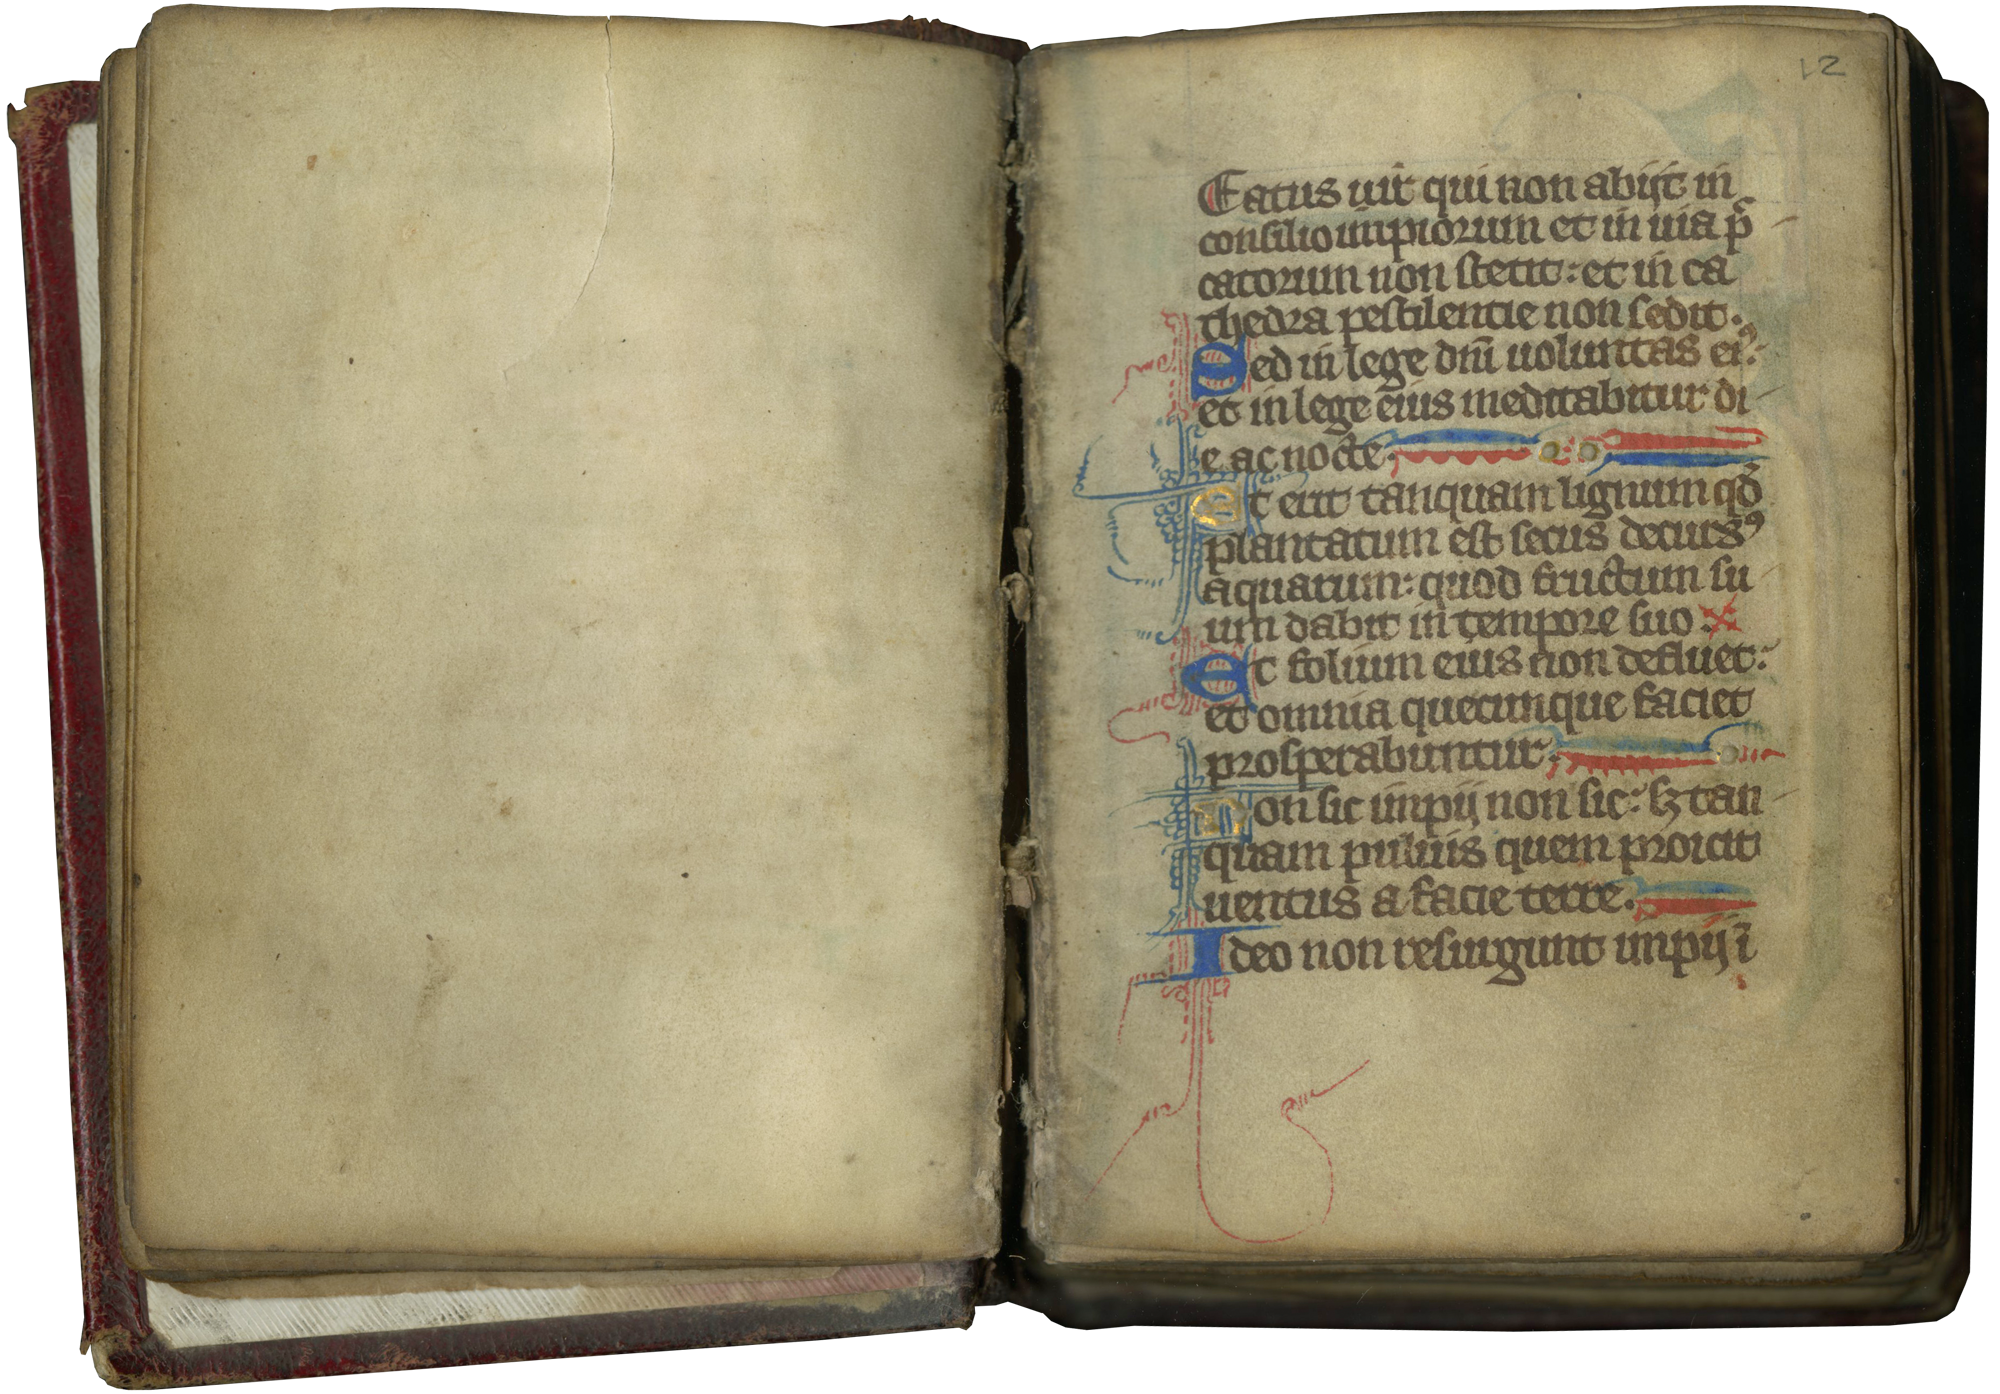 12
Eatus uir̃ qui non abijt in
consilio impiorum et in uia p̃
catorum non stetit: et in ca
thedra pestilentie non sedit.
Sed in lege dñi uoluntas eiꝰ:
et in lege eius meditabitur di
e ac nocte.
Et erit tanquam lignum qd̃
plantatum est secus decursꝰ
aquarum: quod fructum su
um dabit in tempore suo.
Et folium eius non defluet:
et omnia quecunque faciet
prosperabuntur.
Non sic impij non sic: sꝫ tan
quam puluis quem proicit
uentus a facie terre.
Ideo non resurgunt impij ĩ